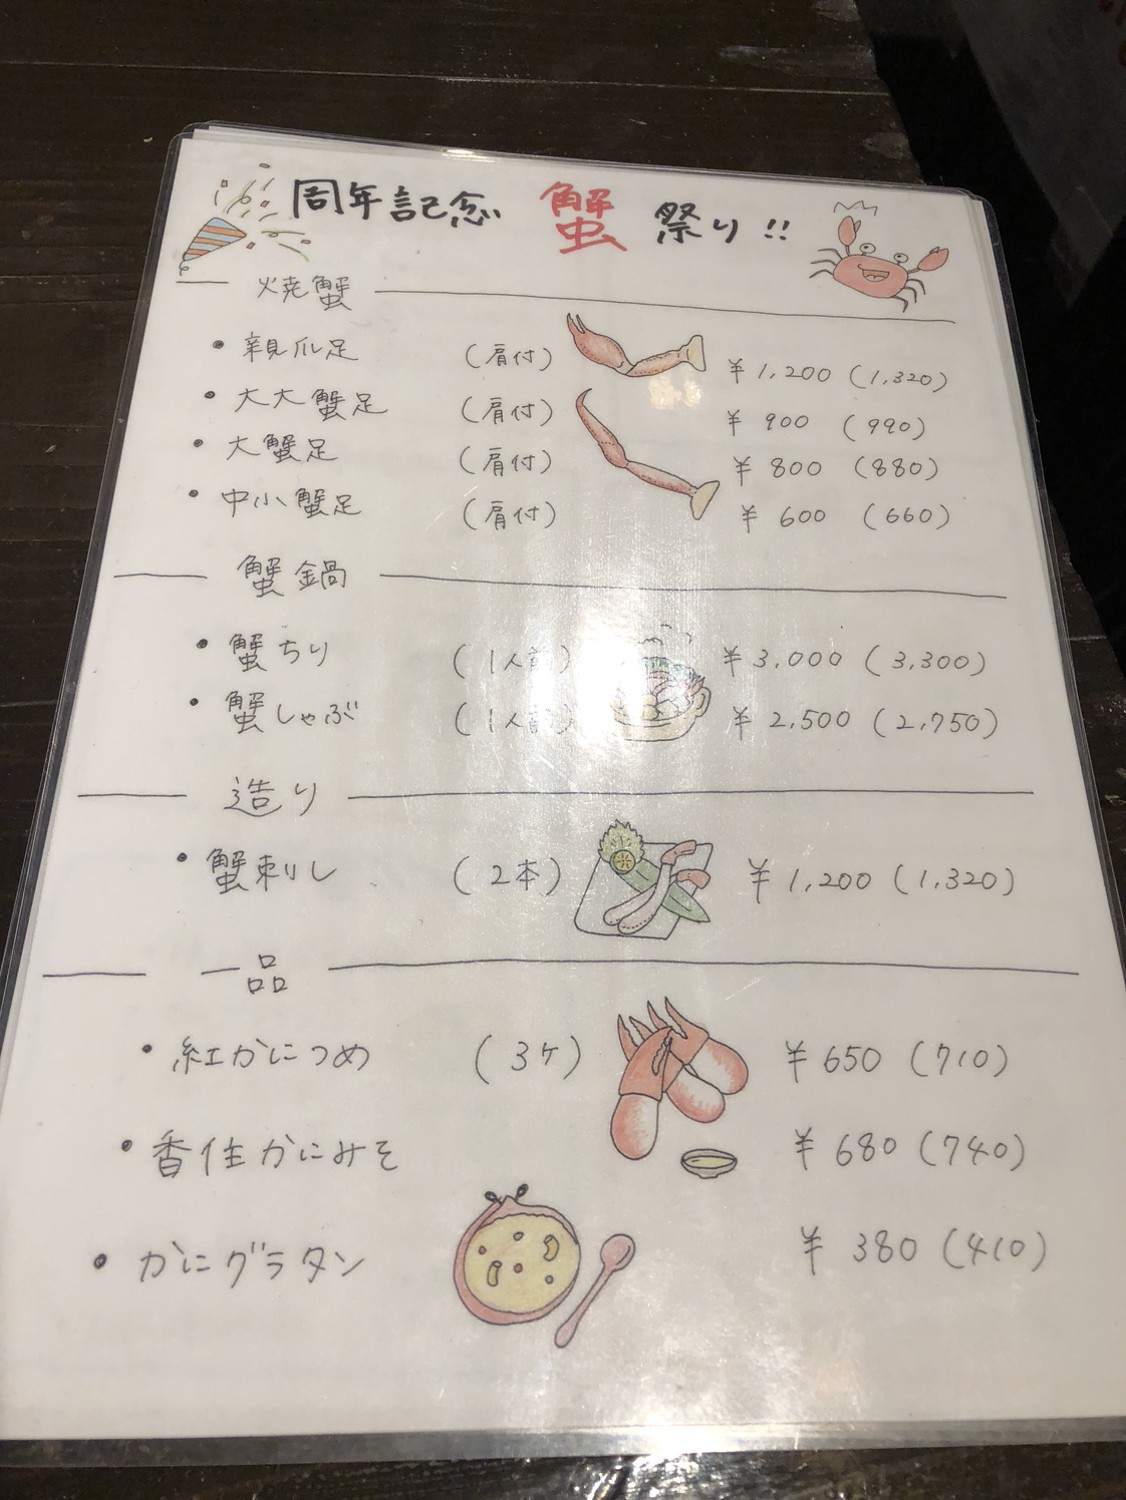 周年記念 蟹 祭り!!
焼蟹
・親爪足 (肩付) ¥1,200 (1,320)
・大大蟹足 (肩付) ¥ 900 (990)
・大蟹足 (肩付) ¥ 800 (880)
・中小蟹足 (肩付) ¥ 600 (660)
蟹鍋
・蟹ちり (1人前) ¥3,000 (3,300)
・蟹しゃぶ (1人前) ¥ 2,500 (2,750)
造り
・蟹刺し (2本) ¥1,200 (1,320)
一品
・紅かにつめ (3ケ) ¥650 (710)
・香住かにみそ ¥680 (740)
・かにグラタン ¥ 380 (410)